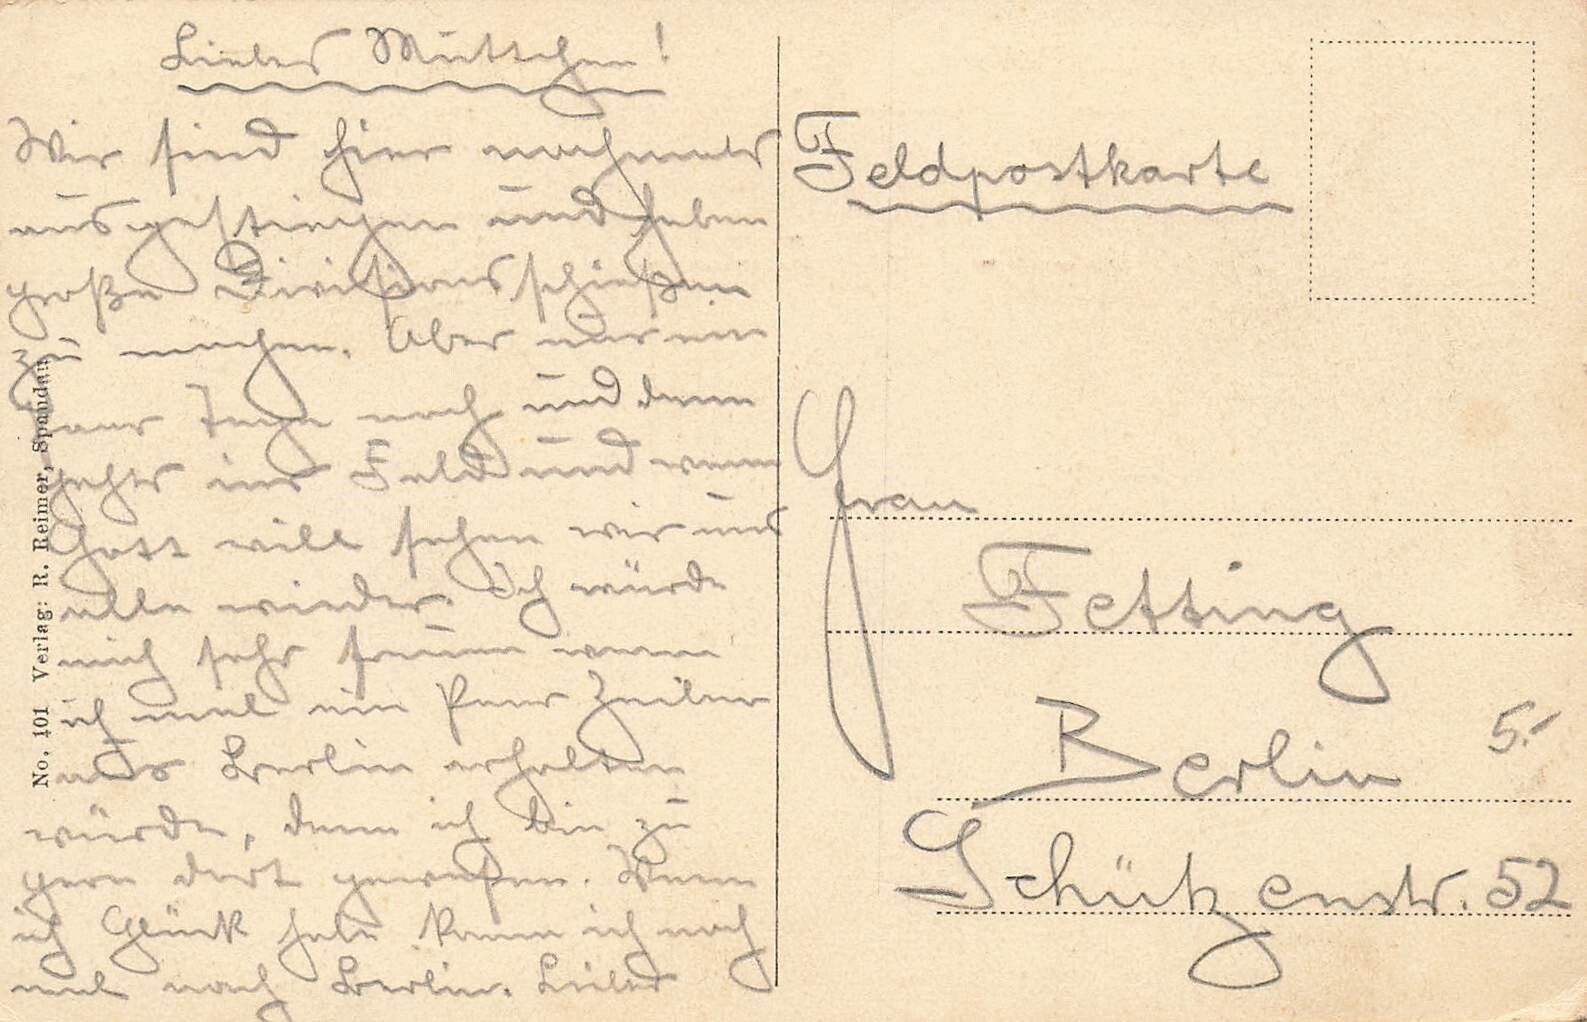 Liebes Muttchen!
Wir sind hier nochmals
ausgestiegen und haben
große Divisionsschießen
zu machen. Aber nur ein
paar Tage noch und dann
gehts ins Feld und wenn
Gott will sehen wir uns
alle wieder. Ich würde
mich sehr freuen wenn
ich mal ein Paar Zeilen
aus Berlin erhalten
würde, denn ich bin zu
gern dort gewesen. Wenn
ich Glück habe kann ich noch
mal nach Berlin.
No. 101 Verlag: R. Reimer, Spandau
Feldpostkarte
Frau
Fetting
Berlin
5.-
Schützenstr. 52